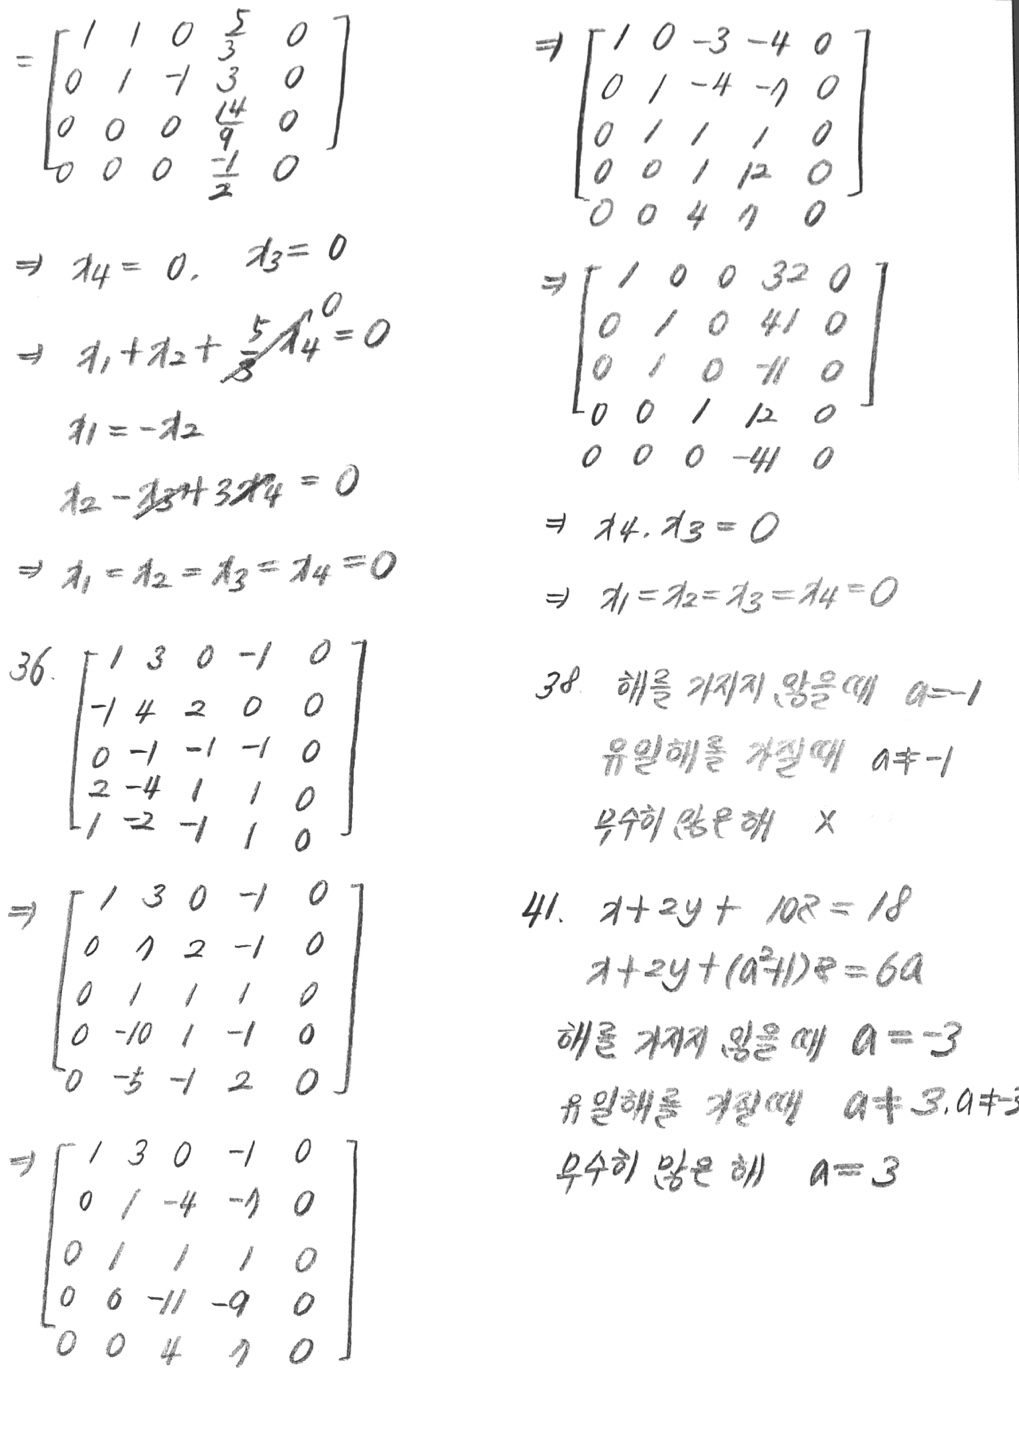 = [ 1 1 0 5/3 0
0 1 -1 3 0
0 0 0 14/9 0
0 0 0 -1/2 0 ]
⇒ x₄ = 0. x₃ = 0
⇒ x₁ + x₂ + 5/3 x₄ = 0
0
x₁ = -x₂
x₂ - x₃ + 3x₄ = 0
⇒ x₁ = x₂ = x₃ = x₄ = 0
36. [ 1 3 0 -1 0
-1 4 2 0 0
0 -1 -1 -1 0
2 -4 1 1 0
1 -2 -1 1 0 ]
⇒ [ 1 3 0 -1 0
0 7 2 -1 0
0 1 1 1 0
0 -10 1 -1 0
0 -5 -1 2 0 ]
⇒ [ 1 3 0 -1 0
0 1 -4 -7 0
0 1 1 1 0
0 0 -11 -9 0
0 0 4 7 0 ]
⇒ [ 1 0 -3 -4 0
0 1 -4 -7 0
0 1 1 1 0
0 0 1 12 0
0 0 4 7 0 ]
⇒ [ 1 0 0 32 0
0 1 0 41 0
0 1 0 -11 0
0 0 1 12 0
0 0 0 -41 0 ]
⇒ x₄. x₃ = 0
⇒ x₁ = x₂ = x₃ = x₄ = 0
38. 해를 가지지 않을때 a=-1
유일해를 가질때 a≠-1
무수히 많은해 x
41. x+2y+ 10z = 18
x+2y+(a²+1)z = 6a
해를 가지지 않을때 a = -3
유일해를 가질때 a≠3. a≠-3
무수히 많은 해 a = 3